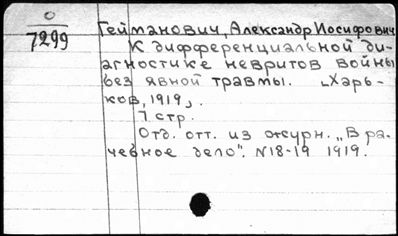 0
7299
Гейманович, Александр Иосифович
К дифференциальной ди-
агностике невритов войны
без явной травмы. [Харь-
ков, 1919].
7 стр.
Отд. отт. из журн. „Вра-
чебное дело". N18-19 1919.